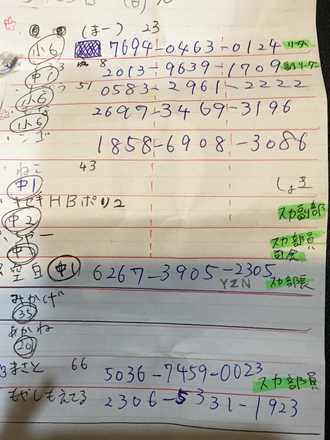 (まー) 23
小6 7694-0463-0124 リーダー
中1 8 2013-9639-1709 副リーダー
小6 51 0583-2961-2222
小6 2697-3469-3196
1858-6908-3086
ねこ 43
中1 しょき
HBポリ2
中2 スカ副部
ャー スカ部員
司会
空白 中1 6267-3905-2305
YZN スカ部長
みかげ
35
あかね
20
まさと 66 5036-7459-0023
スカ部員
もやしもえてる 2306-5331-1923